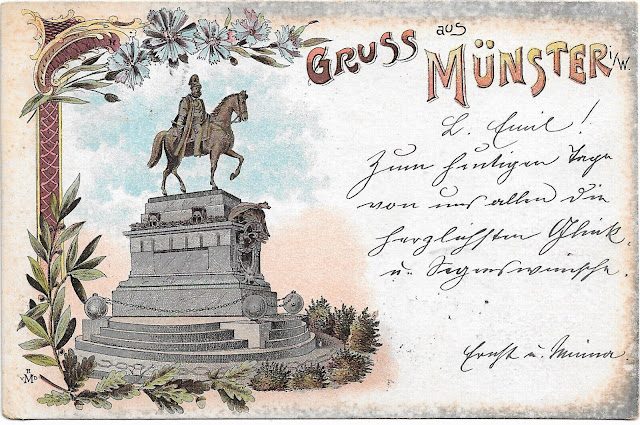 GRUSS aus
MÜNSTER i/W.
L. Emil!
Zum heutigen Tage
von uns allen die
herzlichsten Glück-
u. Segenswünsche.
Ernst u. Minna